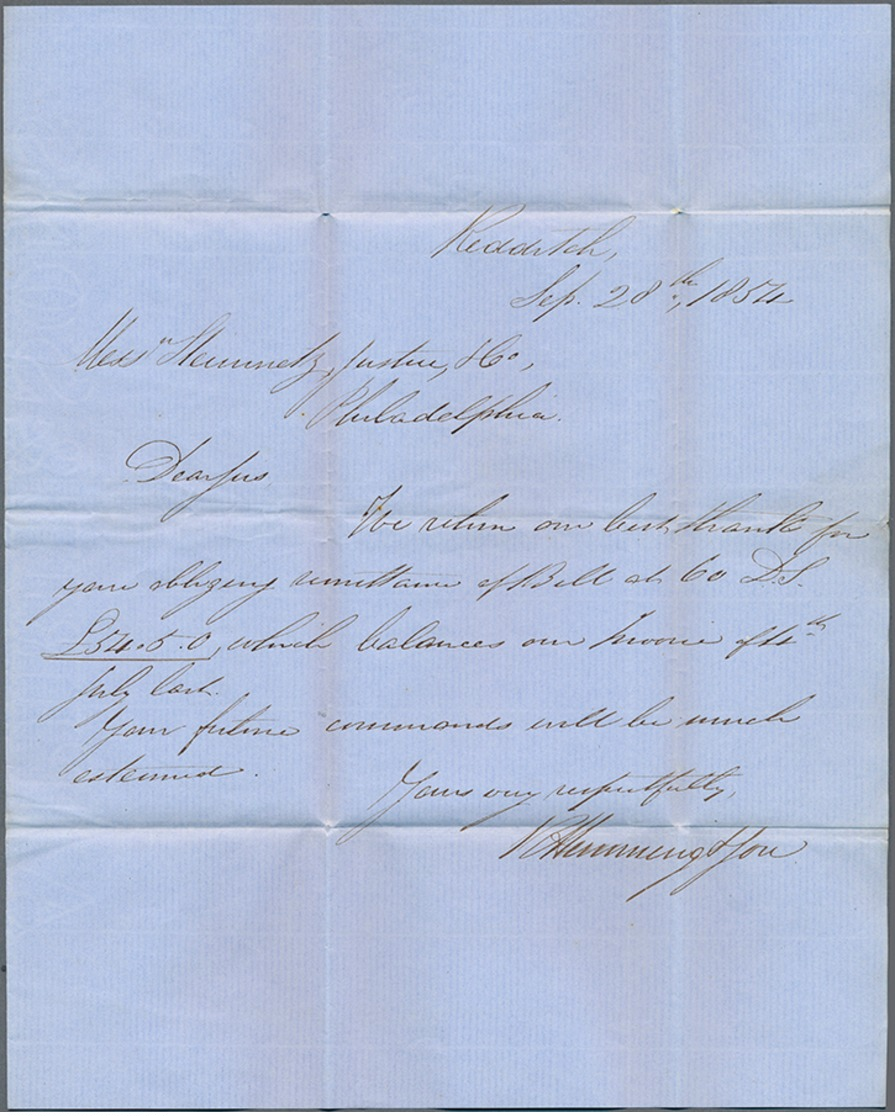 Redditch,
Sep. 28th, 1854
Messrs Steinmetz, Justice, & Co,
Philadelphia.
Dear Sirs
We return our best thanks for
your obliging remittance of Bill at 60 D.S.
£54.5.0, which balances our Invoice of 4th
July last.
Your future commands will be much
esteemed.
Yours very respectfully,
R Hemming & Son